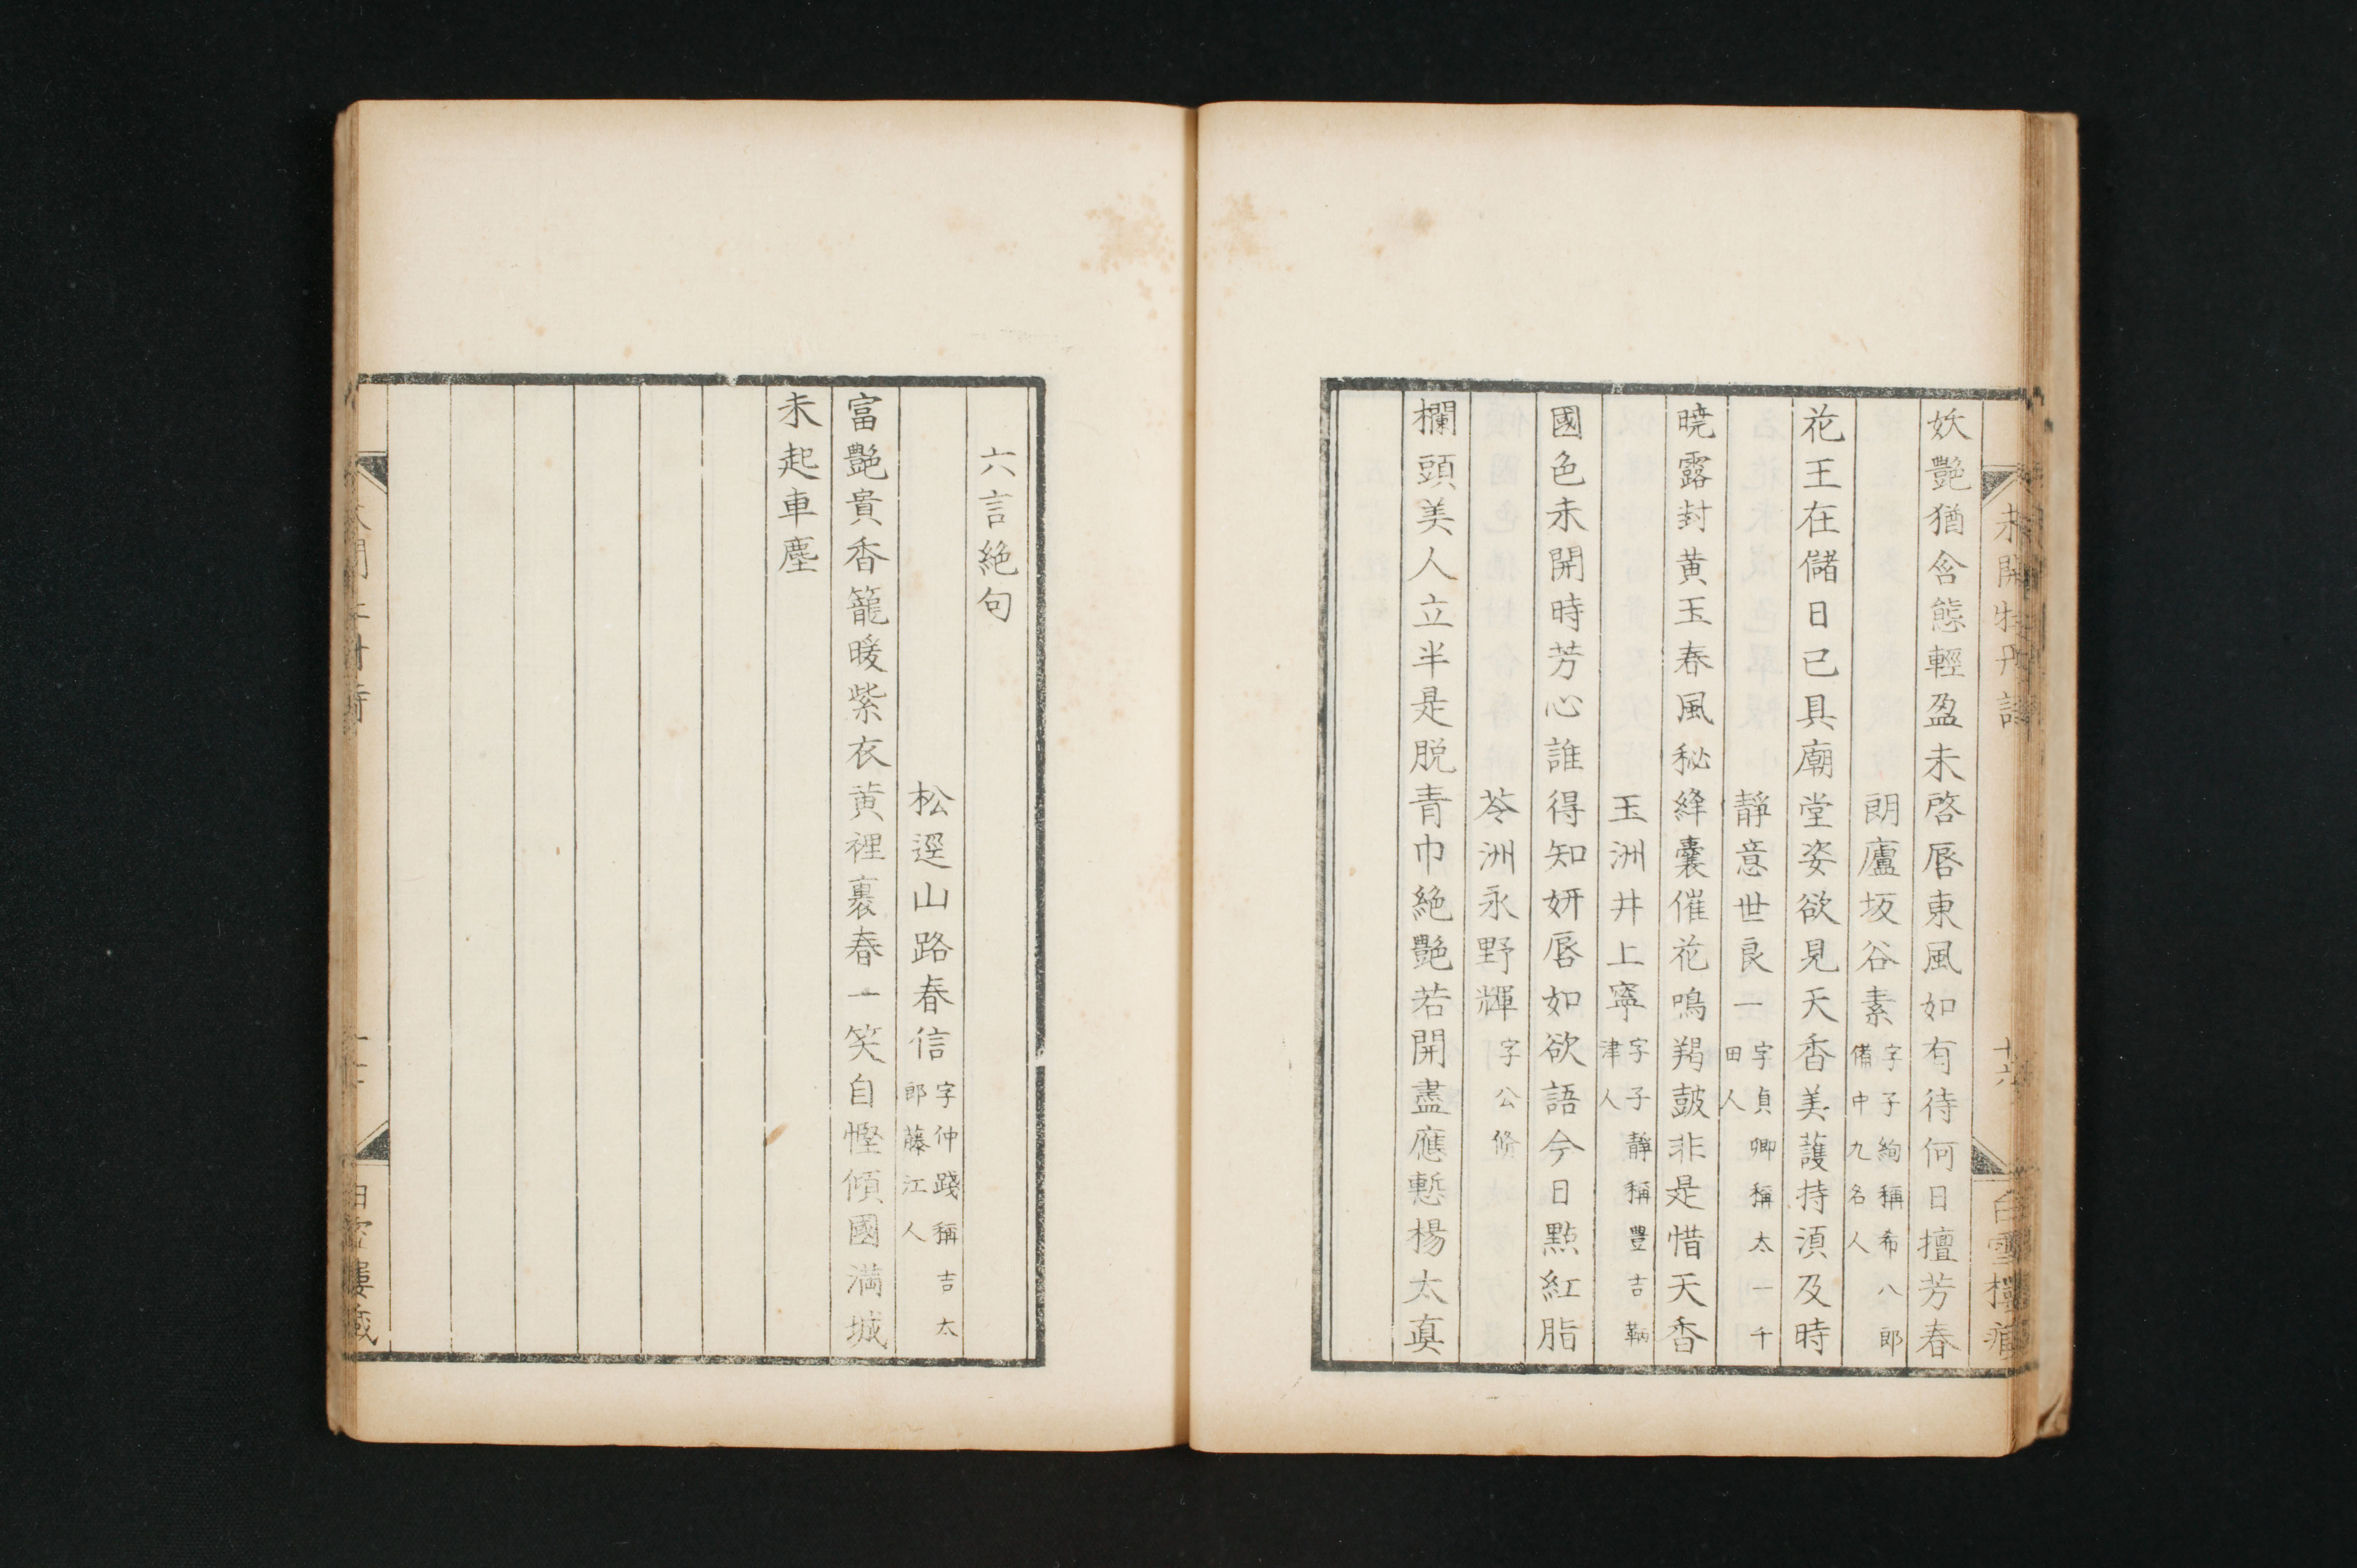 未開牡丹詩
十六
妖艷猶含態輕盈未啓唇東風如有待何日擅芳春
朗廬坂谷素字子絢稱希八郎備中九名人
花王在儲日已具廟堂姿欲見天香美護持湏及時
靜意世良一字貞卿稱太一千田人
曉露封黄玉春風秘絳囊催花鳴羯鼓非是惜天香
玉洲井上寧字子靜稱豊吉鞆津人
國色未開時芳心誰得知妍唇如欲語今日㸃紅脂
苓洲永野輝字公脩
欄頭美人立半是脱青巾絶艷若開盡應慙楊太真
六言絶句
松逕山路春信字仲踐稱吉太郎藤江人
富艷貴香籠暖紫衣黄裡裹春一笑自慳傾國満城
未起車塵